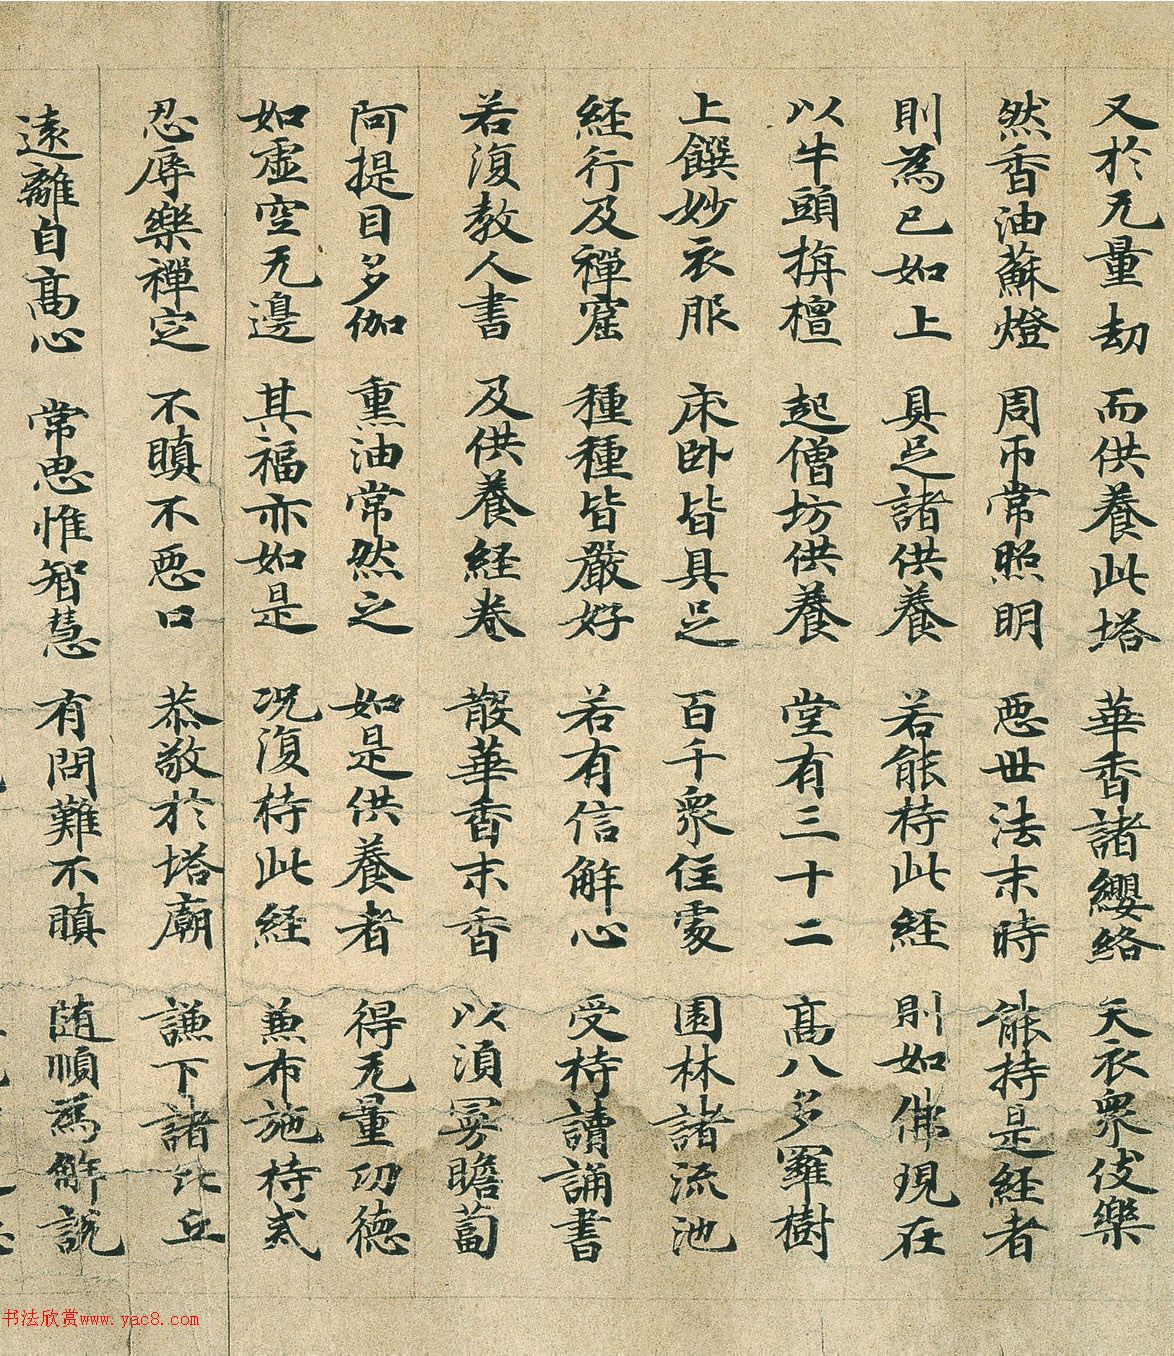 又於无量劫 而供養此塔 華香諸纓絡 天衣衆伎樂
然香油蘇燈 周帀常照明 惡世法末時 能持是經者
則為已如上 具足諸供養 若能持此經 則如佛現在
以牛頭栴檀 起僧坊供養 堂有三十二 高八多羅樹
上饌妙衣服 床卧皆具足 百千衆住處 園林諸流池
經行及禪窟 種種皆嚴好 若有信解心 受持讀誦書
若復教人書 及供養經卷 散華香末香 以須曼瞻蔔
阿提目多伽 熏油常然之 如是供養者 得无量功德
如虛空无邊 其福亦如是 況復持此經 兼布施持戒
忍辱樂禪定 不瞋不惡口 恭敬於塔廟 謙下諸比丘
遠離自高心 常思惟智慧 有問難不瞋 随順爲解說
书法欣赏www.yac8.com